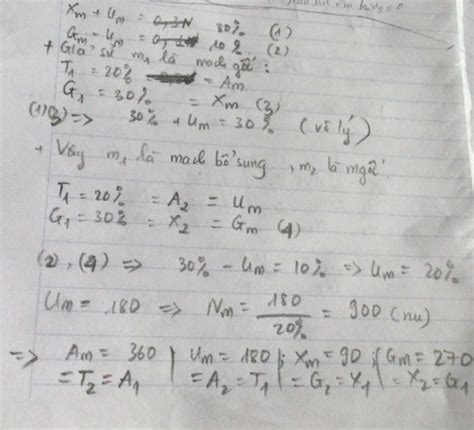 Xm + Um = 30% (1)
Gm - Um = 10% (2)
+ Giả sử m1 là mạch gốc:
T1 = 20% = Am
G1 = 30% = Xm (3)
(1)(3) => 30% + Um = 30% (vô lý)
+ Vậy m1 là mạch bổ sung, m2 là mgốc.
T1 = 20% = A2 = Um
G1 = 30% = X2 = Gm (4)
(2), (4) => 30% - Um = 10% => Um = 20%
Um = 180 => Nm = 180/20% = 900 (nu)
=> Am = 360 | Um = 180 ; Xm = 90 ; Gm = 270
= T2 = A1 | = A2 = T1 | = G2 = X1 | = X2 = G1